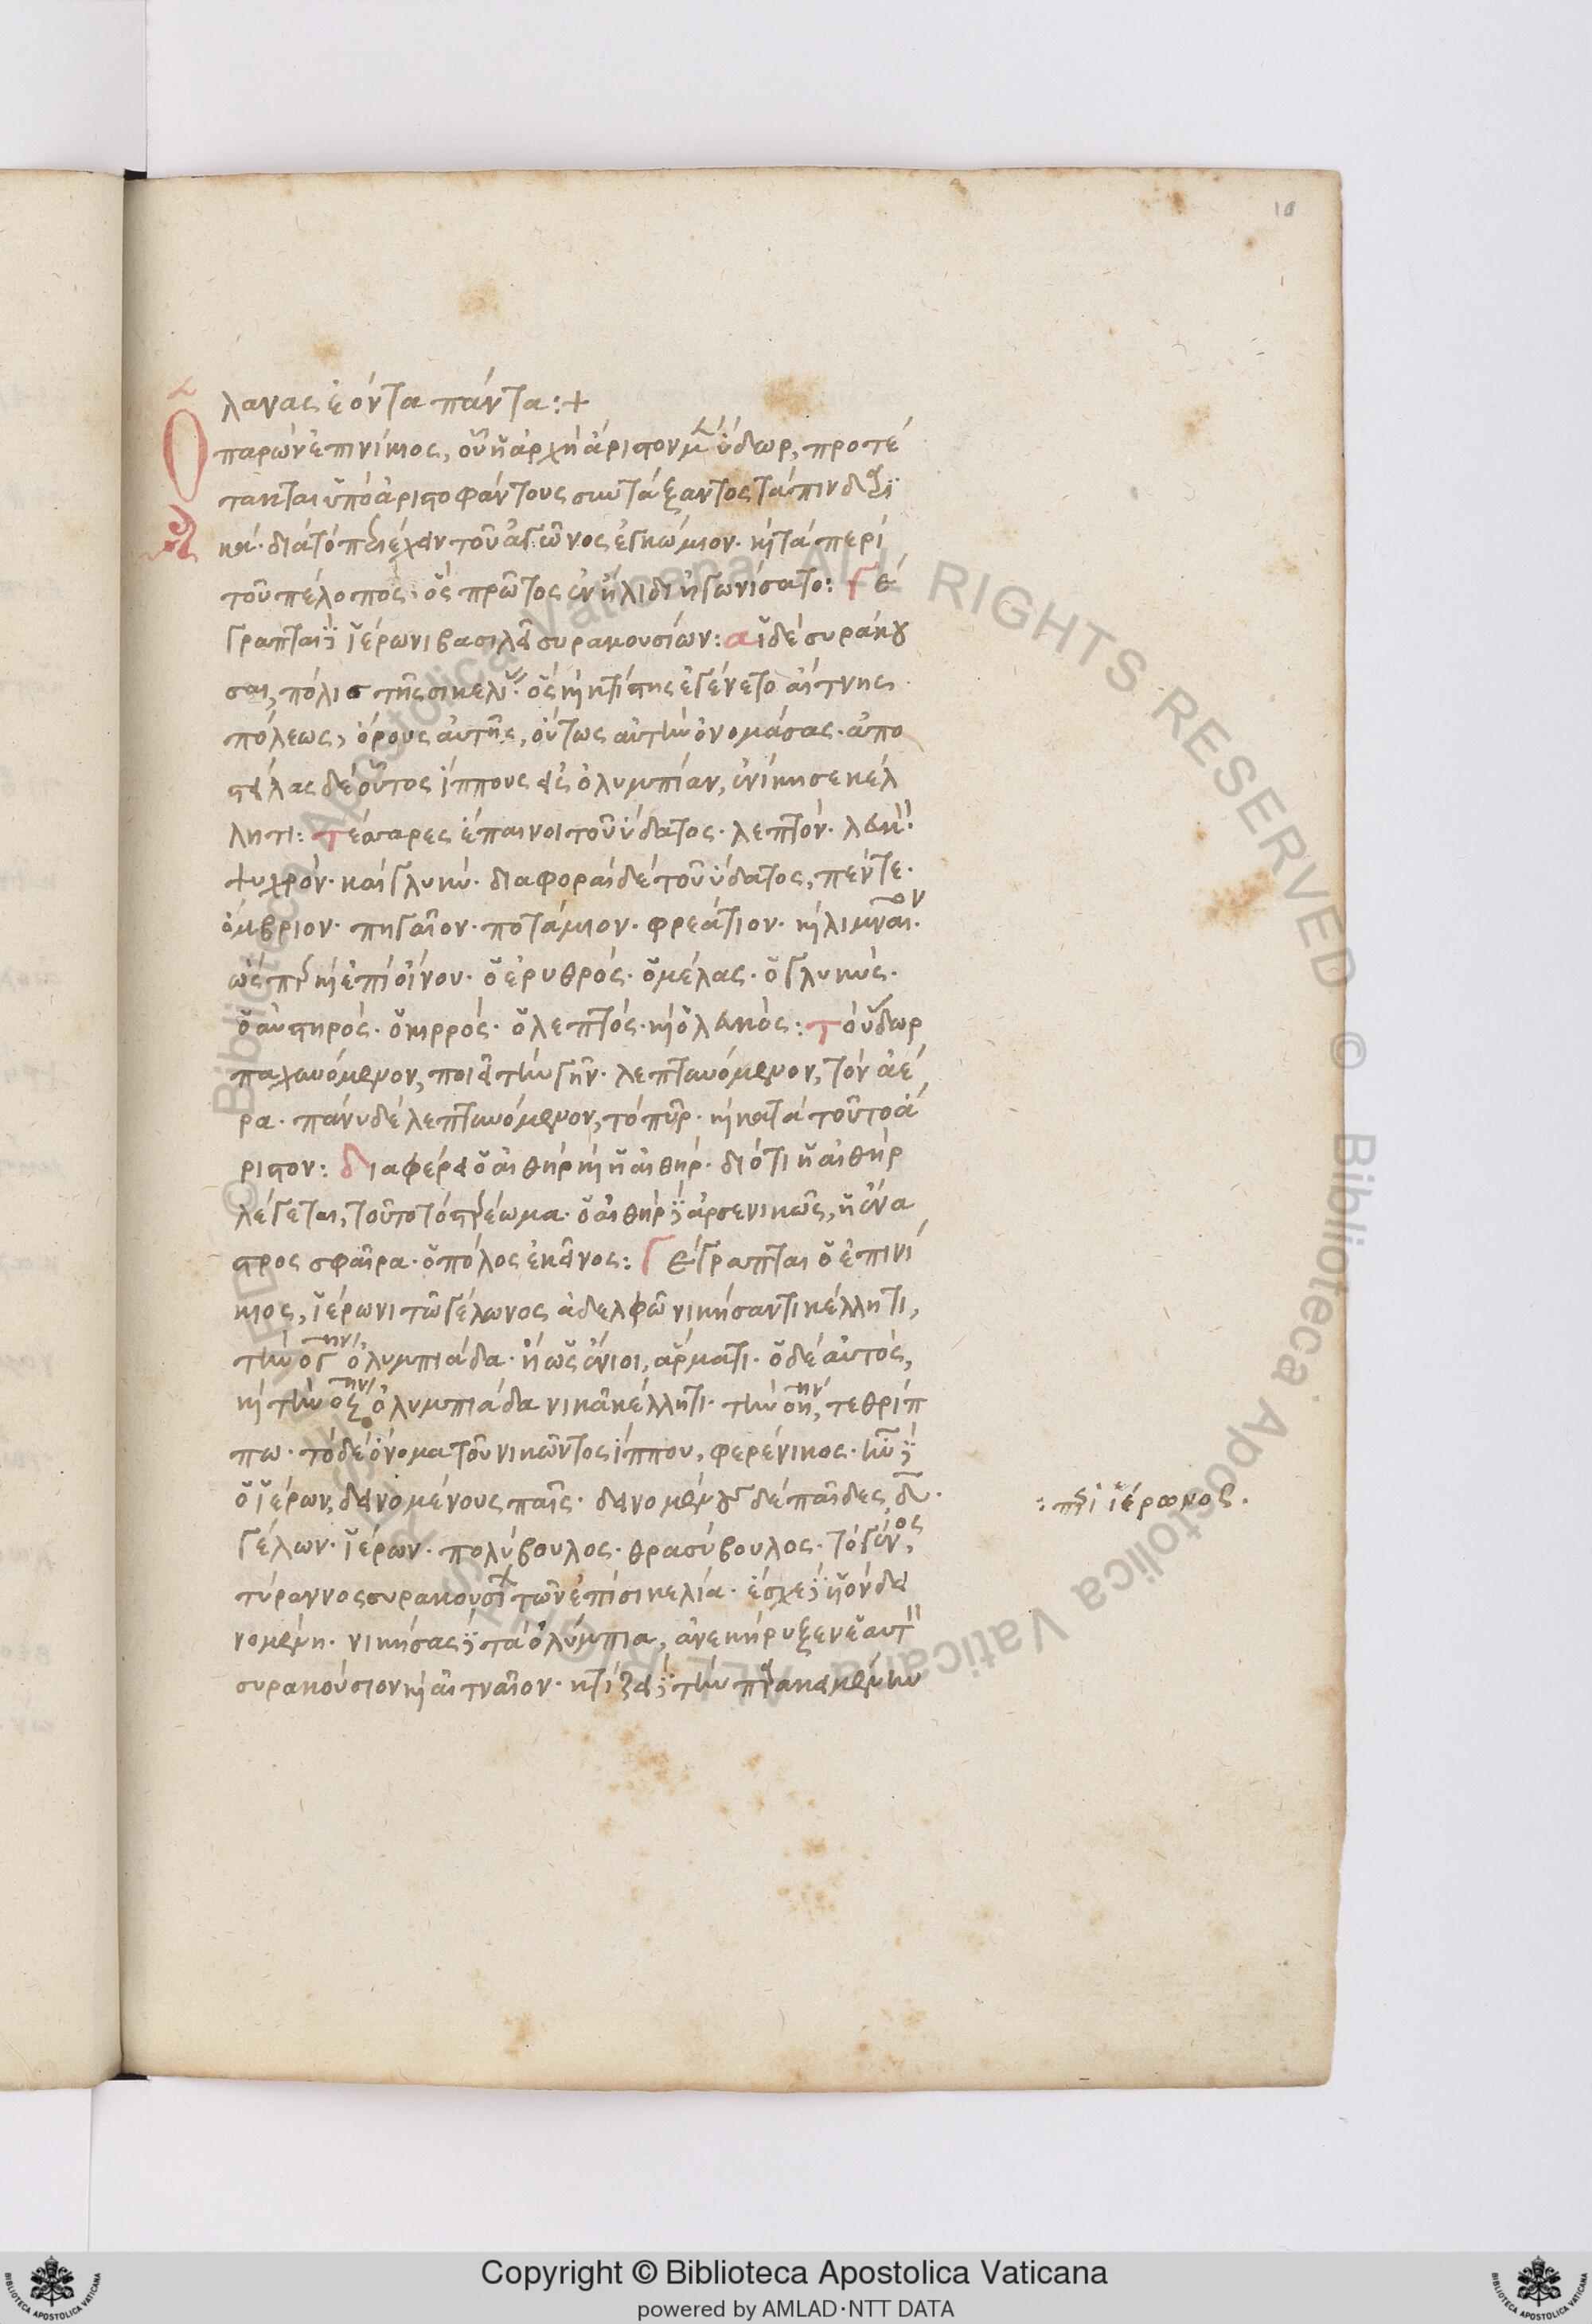 10
λανας ἐόντα πάντα:+
Ὁ παρὼν ἐπινίκιος, οὗ ἡ ἀρχὴ ἄριστον μὲν ὕδωρ, προτέ
τακται ὑπὸ ἀριστοφάντους συντάξαντος τὰ πινδαρι
κά· διὰ τὸ περιέχειν τοῦ ἀγῶνος ἐγκώμιον· καὶ τὰ περὶ
τοῦ πέλοπος· ὃς πρῶτος ἐν ἤλιδι ἠγωνίσατο: Γέ
γραπται δὲ ἱέρωνι βασιλεῖ συρακουσίων: αἱ δὲ συράκου
σαι, πόλις τῆς σικελίας· ὃς καὶ κτίστης ἐγένετο αἴτνης
πόλεως, ὄρους αὐτῆς, οὕτως αὐτὴν ὀνομάσας· ἀπο
στείλας δὲ οὗτος ἵππους εἰς ὀλυμπίαν, ἐνίκησε κέλ
λητι: τέσσαρες ἔπαινοι τοῦ ὕδατος· λεπτόν· λευκόν·
ψυχρόν· καὶ γλυκύ· διαφοραὶ δὲ τοῦ ὕδατος, πέντε·
ὄμβριον· πηγαῖον· ποτάμιον· φρεάτιον· καὶ λιμναῖον·
ὥσπερ καὶ ἐπὶ οἴνου· ὁ ἐρυθρός· ὁ μέλας· ὁ γλυκύς·
ὁ αὐστηρός· ὁ κιρρός· ὁ λεπτός· καὶ ὁ λευκός: τὸ ὕδωρ
παχυνόμενον, ποιεῖ τὴν γῆν· λεπτυνόμενον, τὸν ἀέ
ρα· πάνυ δὲ λεπτυνόμενον, τὸ πῦρ· καὶ κατὰ τοῦτο ἄ
ριστον: διαφέρει ὁ αἰθὴρ καὶ ἡ αἰθήρ· διότι ἡ αἰθὴρ
λέγεται, τοῦτο τὸ στερέωμα· ὁ αἰθὴρ δὲ ἀρσενικῶς, ἡ ἔνα
στρος σφαῖρα· ὁ πόλος ἐκεῖνος: Γέγραπται ὁ ἐπινί
κιος, ἱέρωνι τῶ γέλωνος ἀδελφῶ νικήσαντι κέλλητι,
τὴν ογ την ὀλυμπιάδα· ἢ ὡς ἔνιοι, ἅρματι· ὁ δὲ αὐτὸς,
καὶ τὴν οξ την ὀλυμπιάδα νικᾶ κέλλητι· τὴν οη ην, τεθρίπ
πω· τὸ δὲ ὄνομα τοῦ νικῶντος ἵππου, φερένικος· ἦν δὲ
ὁ ἱέρων, δεινομένους παῖς· δεινομένους δὲ παῖδες δ·
γέλων· ἱέρων· πολύβουλος· θρασύβουλος· τὸ γένος,
τύραννος συρακουσίων τῶν ἐπὶ σικελία· ἔσχε δὲ υἱὸν δει
νομένη· νικήσας δὲ τὰ ὀλύμπια, ἀνεκήρυξεν ἑαυτὸν
συρακούσιον καὶ αἰτναῖον· κτίζει δὲ τὴν παρακειμένην
: περὶ ἱέρωνος.
© Biblioteca Apostolica Vaticana ALL RIGHTS RESERVED © Biblioteca Apostolica Vaticana ALL RIGHTS RESERVED
Copyright © Biblioteca Apostolica Vaticana
powered by AMLAD·NTT DATA
BIBLIOTECA APOSTOLICA VATICANA
BIBLIOTECA APOSTOLICA VATICANA